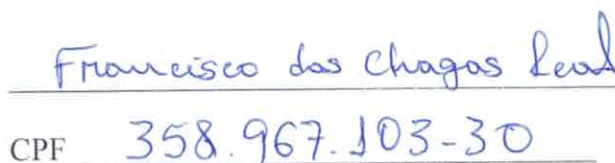 Francisco das Chagas Leal
CPF 358.967.103-30